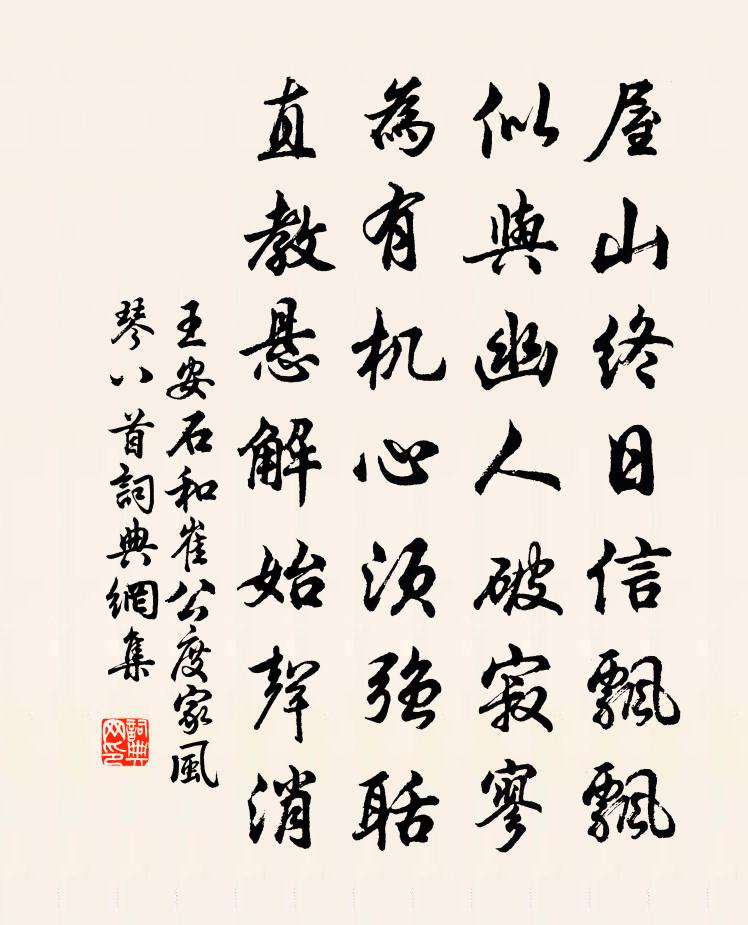 屋山終日信飄飄
似與幽人破寂寥
為有机心須強聒
直教懸解始聲消
王安石和崔公度家風
琴八首詞典網集
詞典网印